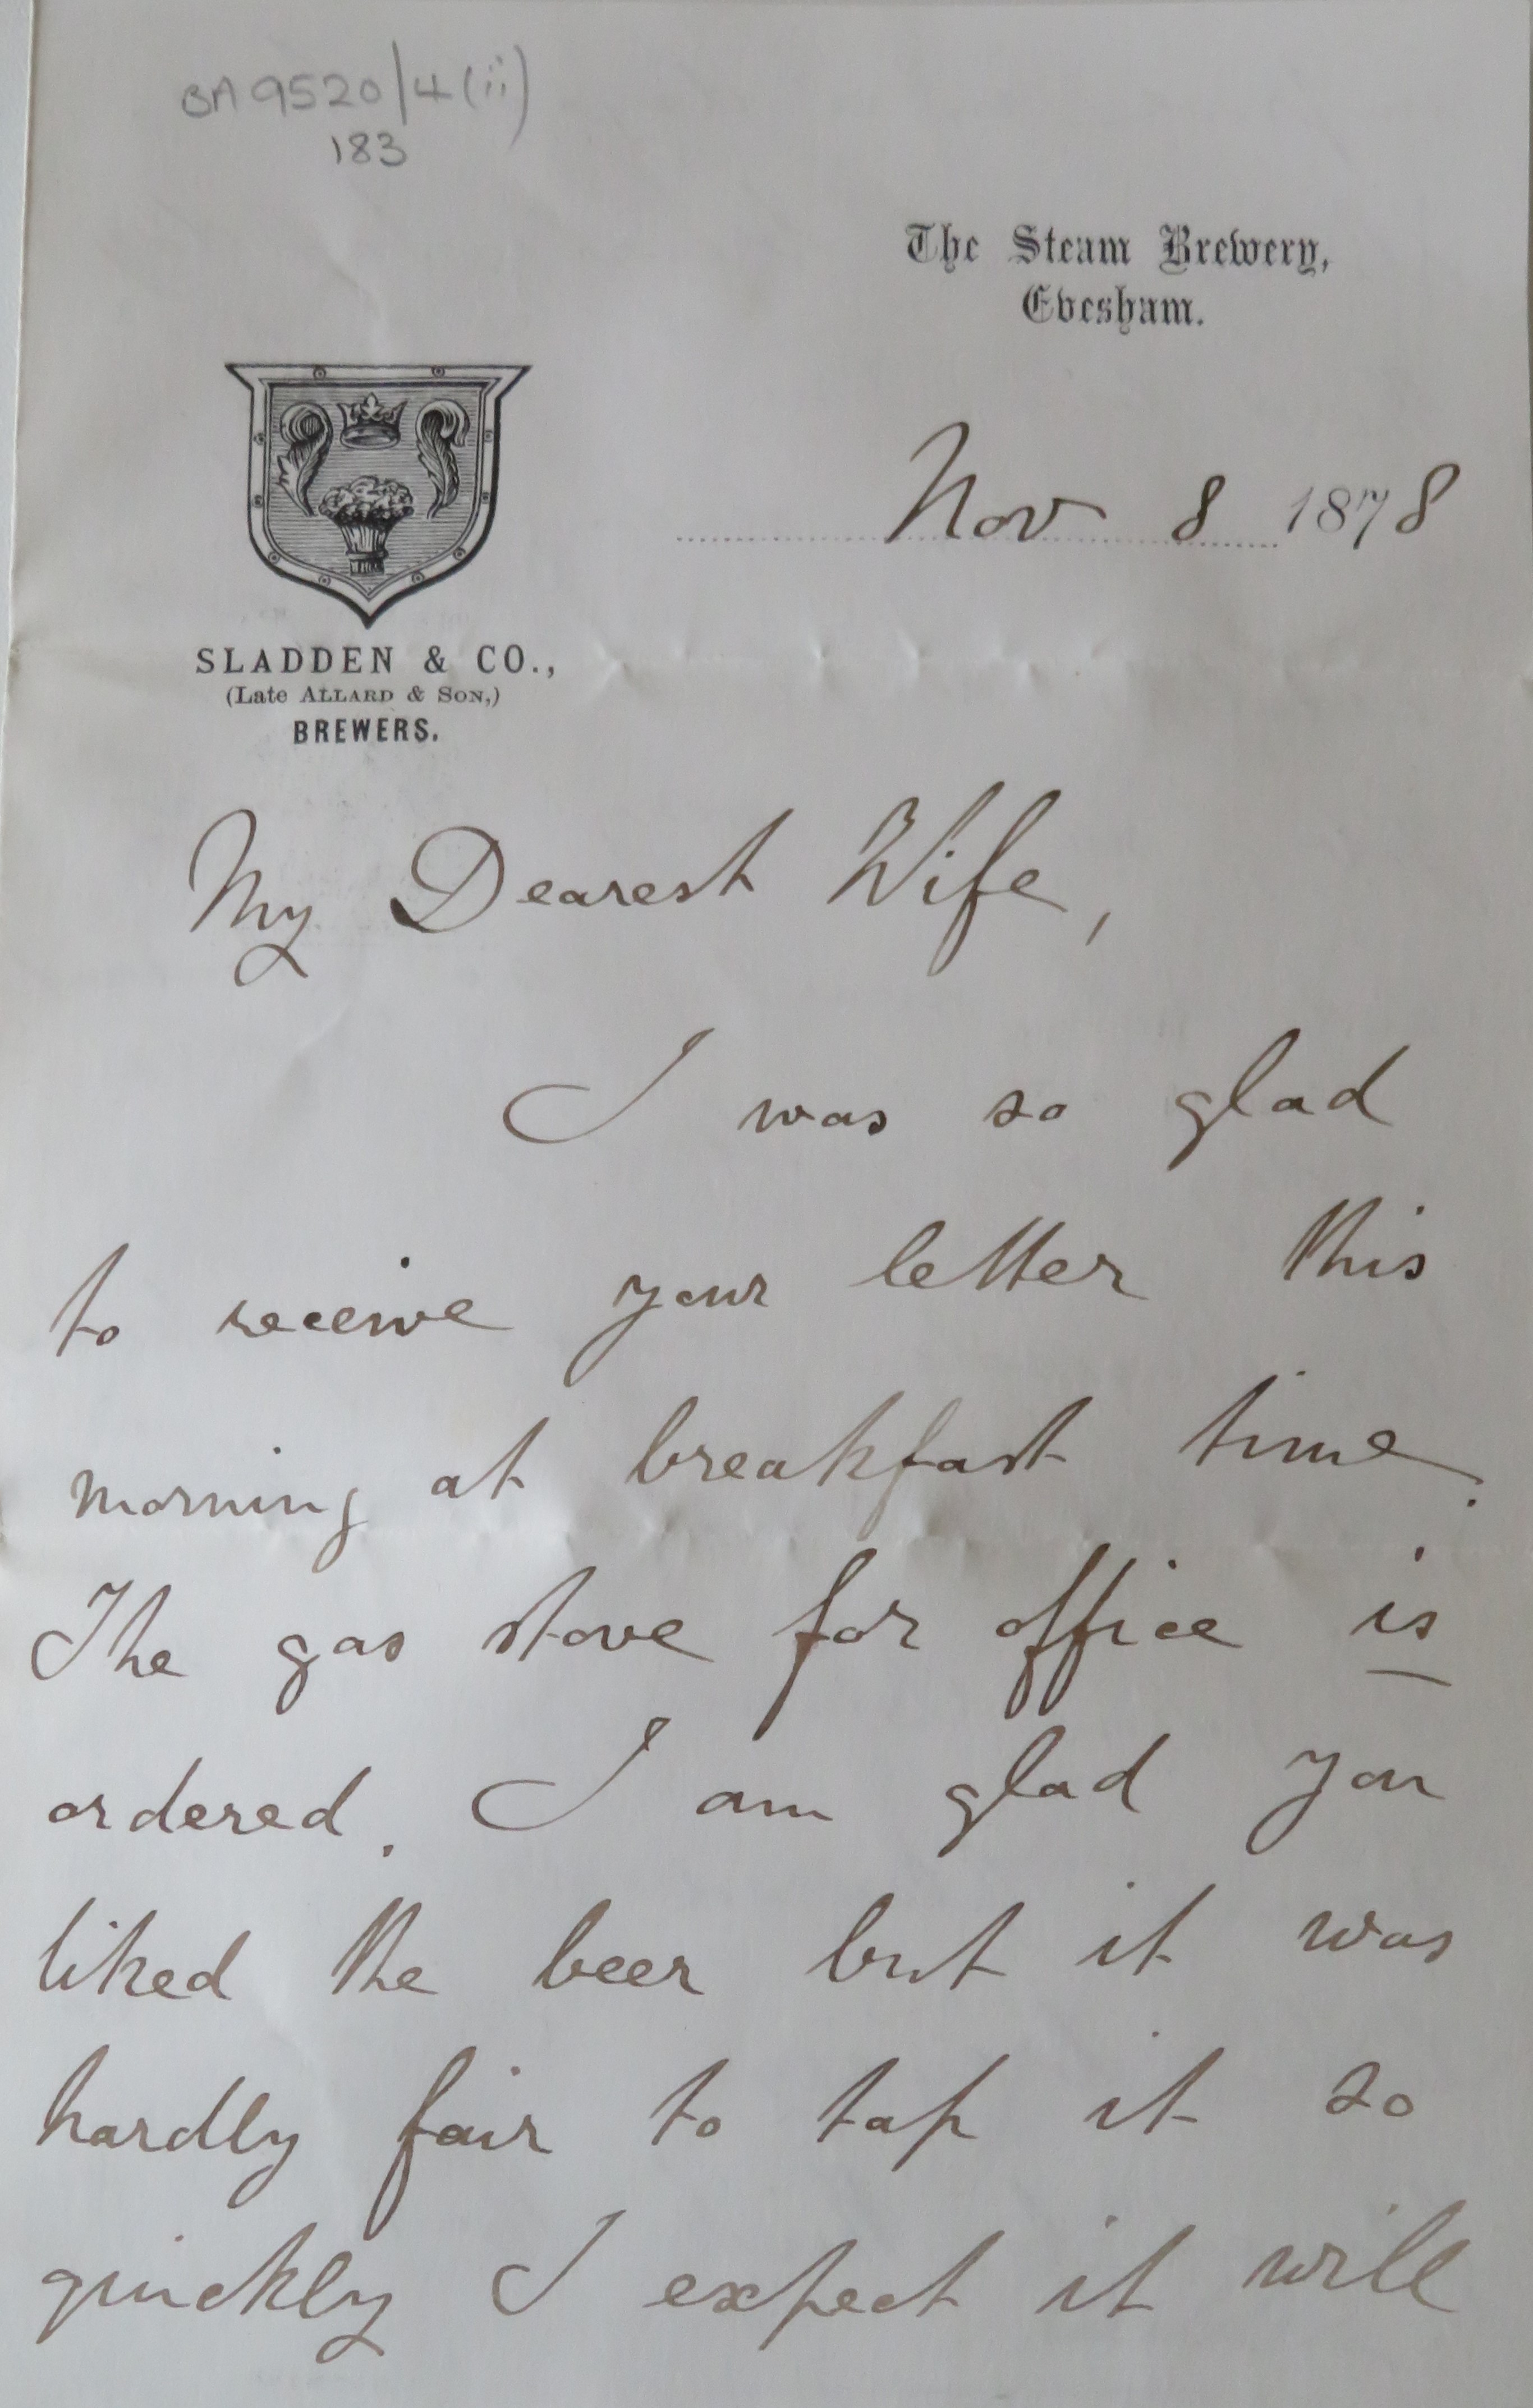 BA 9520/4(ii)
183
The Steam Brewery,
Evesham.
Nov 8 1878
SLADDEN & CO.,
(Late ALLARD & SON,)
BREWERS.
My Dearest Wife,
I was so glad
to receive your letter this
morning at breakfast time.
The gas stove for office is
ordered. I am glad you
liked the beer but it was
hardly fair to tap it so
quickly I expect it will